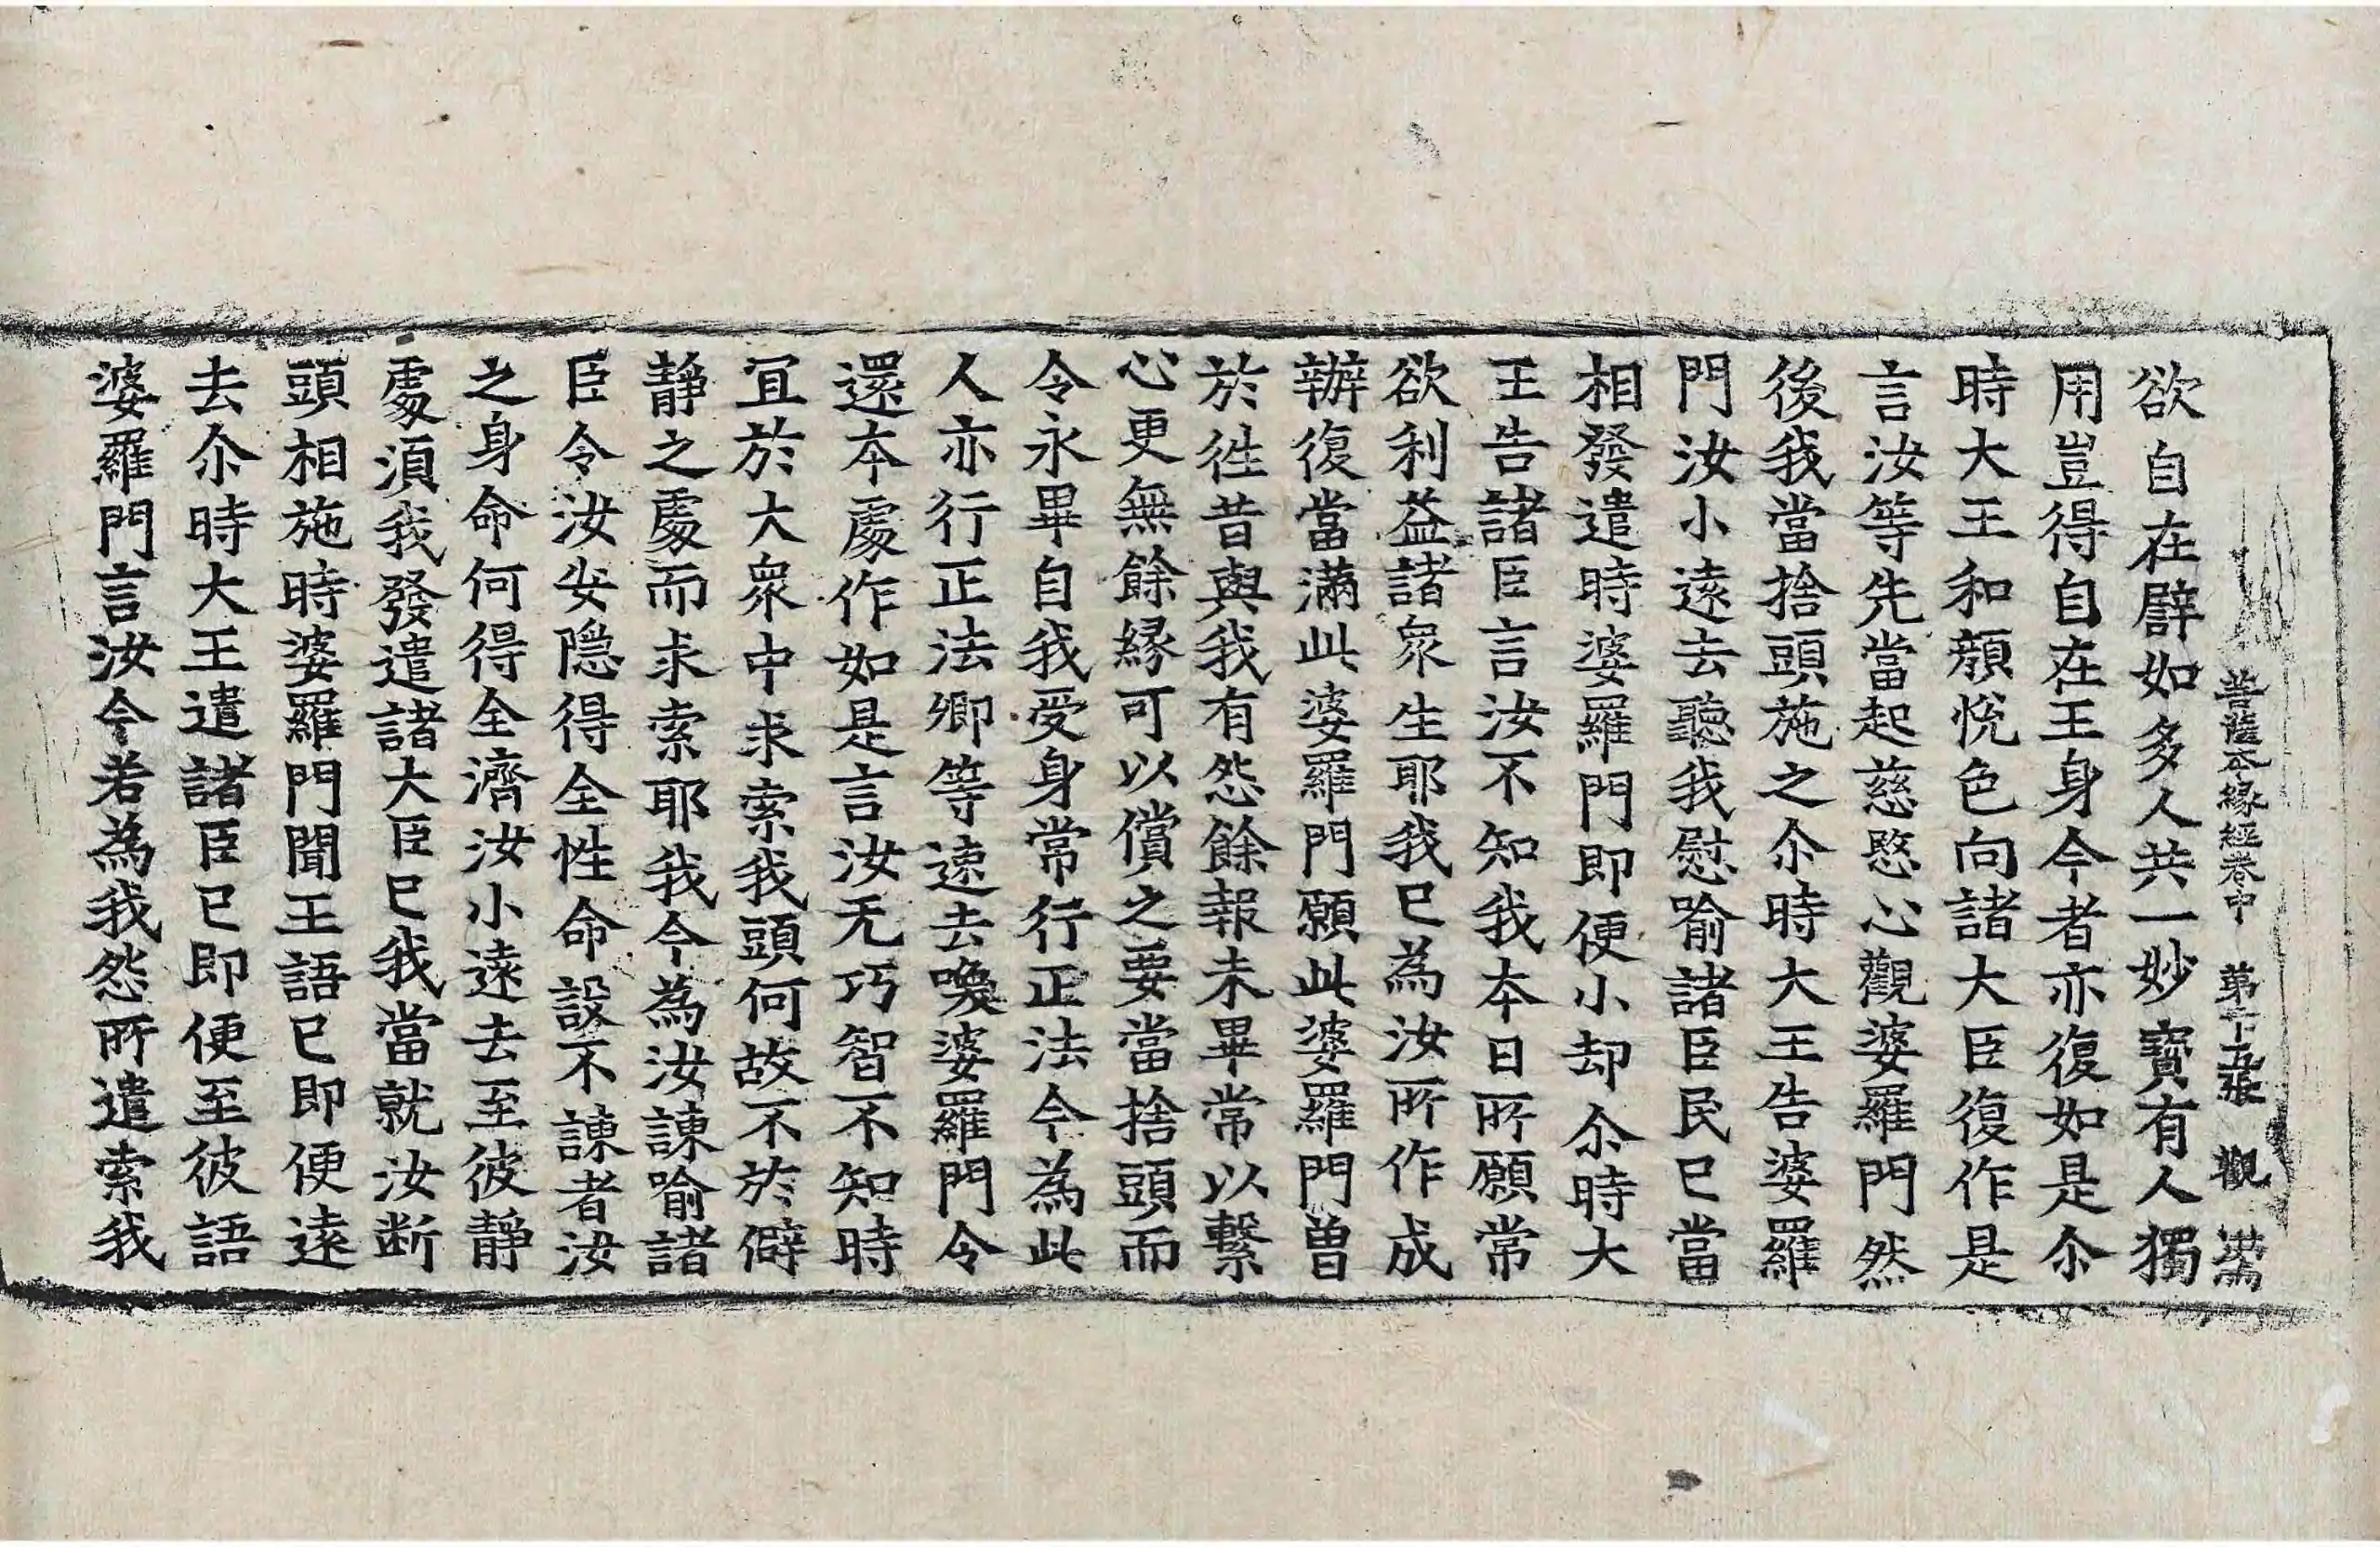 菩薩本緣經卷中 第十五張 觀
欲自在譬如多人共一妙寶有人獨
用豈得自在王身今者亦復如是尒
時大王和顏悅色向諸大臣復作是
言汝等先當起慈愍心觀婆羅門然
後我當捨頭施之尒時大王告婆羅
門汝小遠去聽我慰喻諸臣民已當
相發遣時婆羅門即便小却尒時大
王告諸臣言汝不知我本日所願常
欲利益諸衆生耶我已為汝所作成
辦復當滿此婆羅門願此婆羅門曽
於徃昔與我有怨餘報未畢常以繫
心更無餘緣可以償之要當捨頭而
令永畢自我受身常行正法今為此
人亦行正法卿等速去喚婆羅門令
還本處作如是言汝无巧智不知時
冝於大衆中求索我頭何故不於僻
靜之處而求索耶我今為汝諫喻諸
臣令汝安隱得全性命設不諫者汝
之身命何得全濟汝小遠去至彼靜
處湏我發遣諸大臣已我當就汝斷
頭相施時婆羅門聞王語已即便遠
去尒時大王遣諸臣已即便至彼語
婆羅門言汝今若為我怨所遣索我